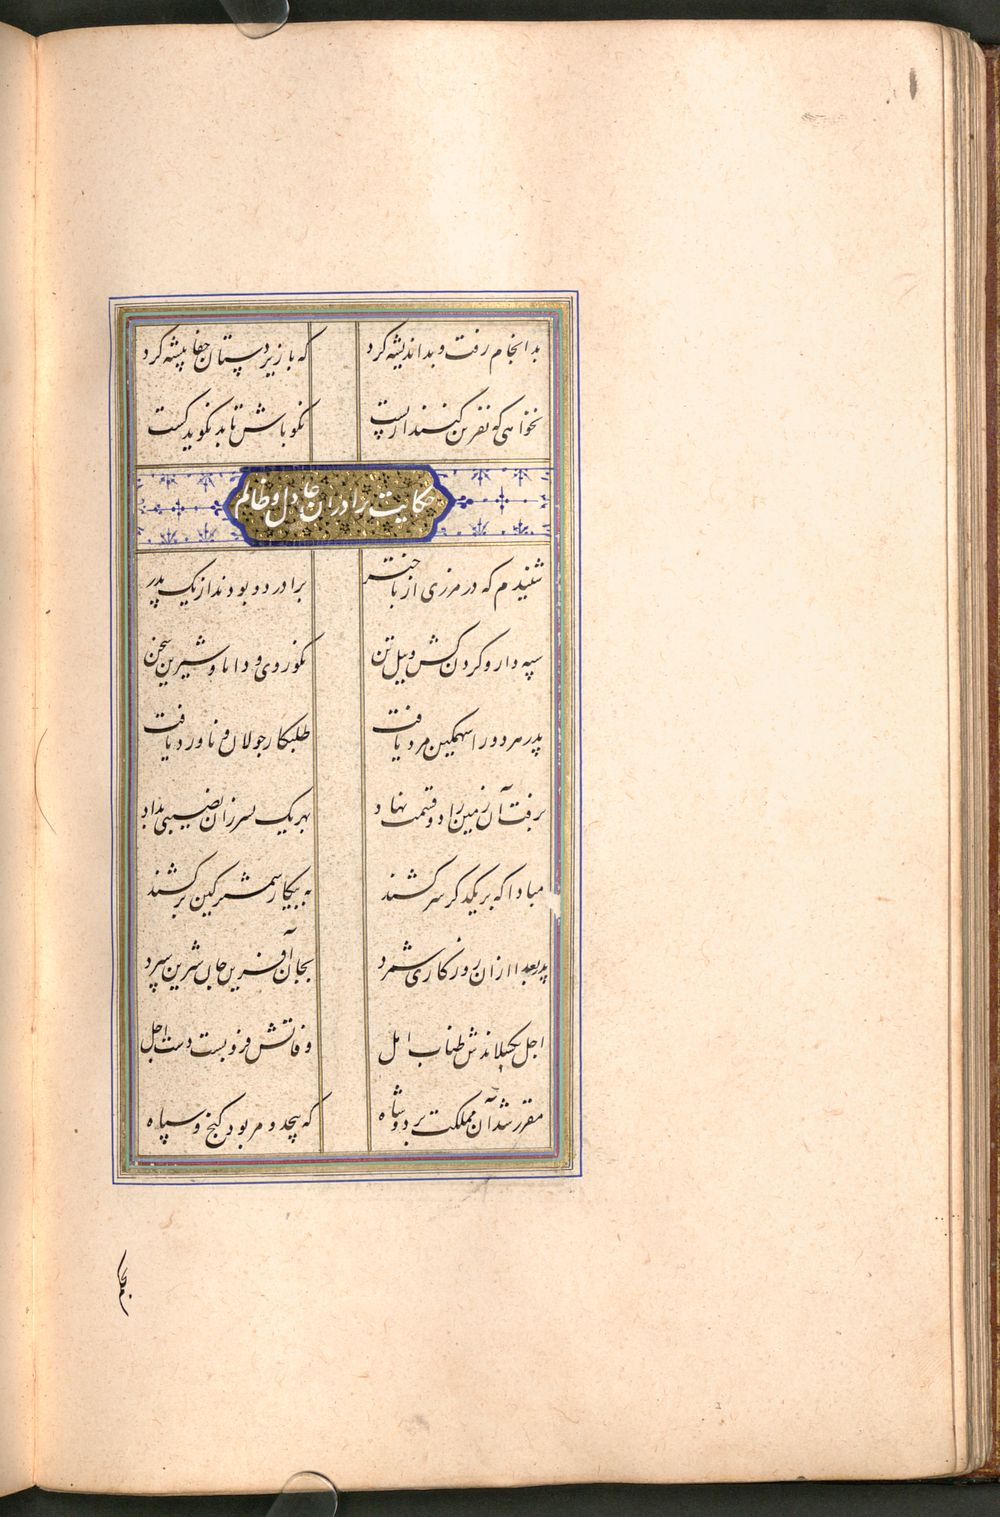 بد انجام رفت و بد اندیشه کرد که با زیر دستان جفا پیشه کرد
نخواهی که نفرین کنند از پست نکو باش تا بد نگوید کست
حکایت برادران عادل و ظالم
شنیدم که در مرزی از باختر برادر دو بودند از یک پدر
سپه دار و گردن کش و پیل تن نکو روی و دانا و شیرین سخن
پدر هر دو را سهمگین مرد یافت طلبکار جولان و ناورد یافت
برفت آن زمین را دو قسمت نهاد بهر یک پسر زان نصیبی بداد
مبادا که بر یکدگر سر کشند به پیکار شمشیر کین بر کشند
پدر بعد از ان روزگاری شمرد بجان آفرین جان شیرین سپرد
اجل بگسلاندش طناب امل وفاتش فرو بست دست اجل
مقرر شد آن مملکت بر دو شاه که بیحد و مر بود گنج و سپاه
بحکم